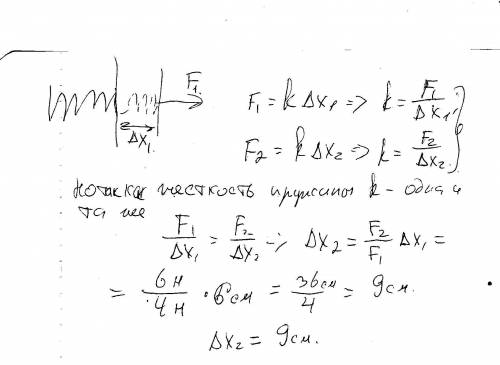 F₁
Δx₁
F₁ = k Δx₁ => k = F₁/Δx₁
F₂ = k Δx₂ => k = F₂/Δx₂
Но так как жесткость пружины k - одна и
та же
F₁/Δx₁ = F₂/Δx₂ => Δx₂ = F₂/F₁ Δx₁ =
= 6н/4н · 6см = 36см/4 = 9см.
Δx₂ = 9см.